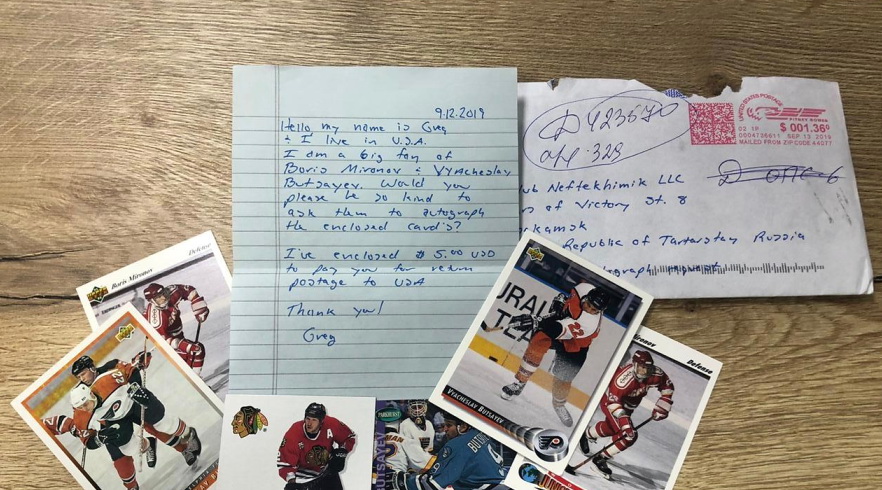 9.12.2019
Hello my name is Greg
& I live in U.S.A.
I am a big fan of
Boris Mironov & Vyacheslav
Butsayev. Would you
please be so kind to
ask them to autograph
the enclosed card's?
I've enclosed $5.00 USD
to pay you for return
postage to USA
Thank you!
Greg
423570
UNITED STATES POSTAGE
PITNEY BOWES
02 1P
$ 001.36⁰
SEP 13 2019
MAILED FROM ZIP CODE 44077
Neftekhimik LLC
of Victory St. 8
Republic of Tartarstay Russia
Boris Mironov
Defense
VYACHESLAV BUTSAYEV
Defense
A
PARKHURST
22